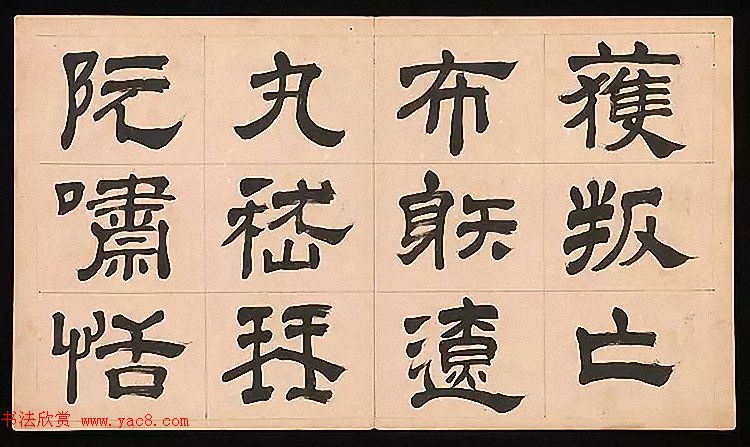 獲叛亡
布䠶遼
丸嵇琴
阮嘯恬
书法欣赏 www.yac8.com